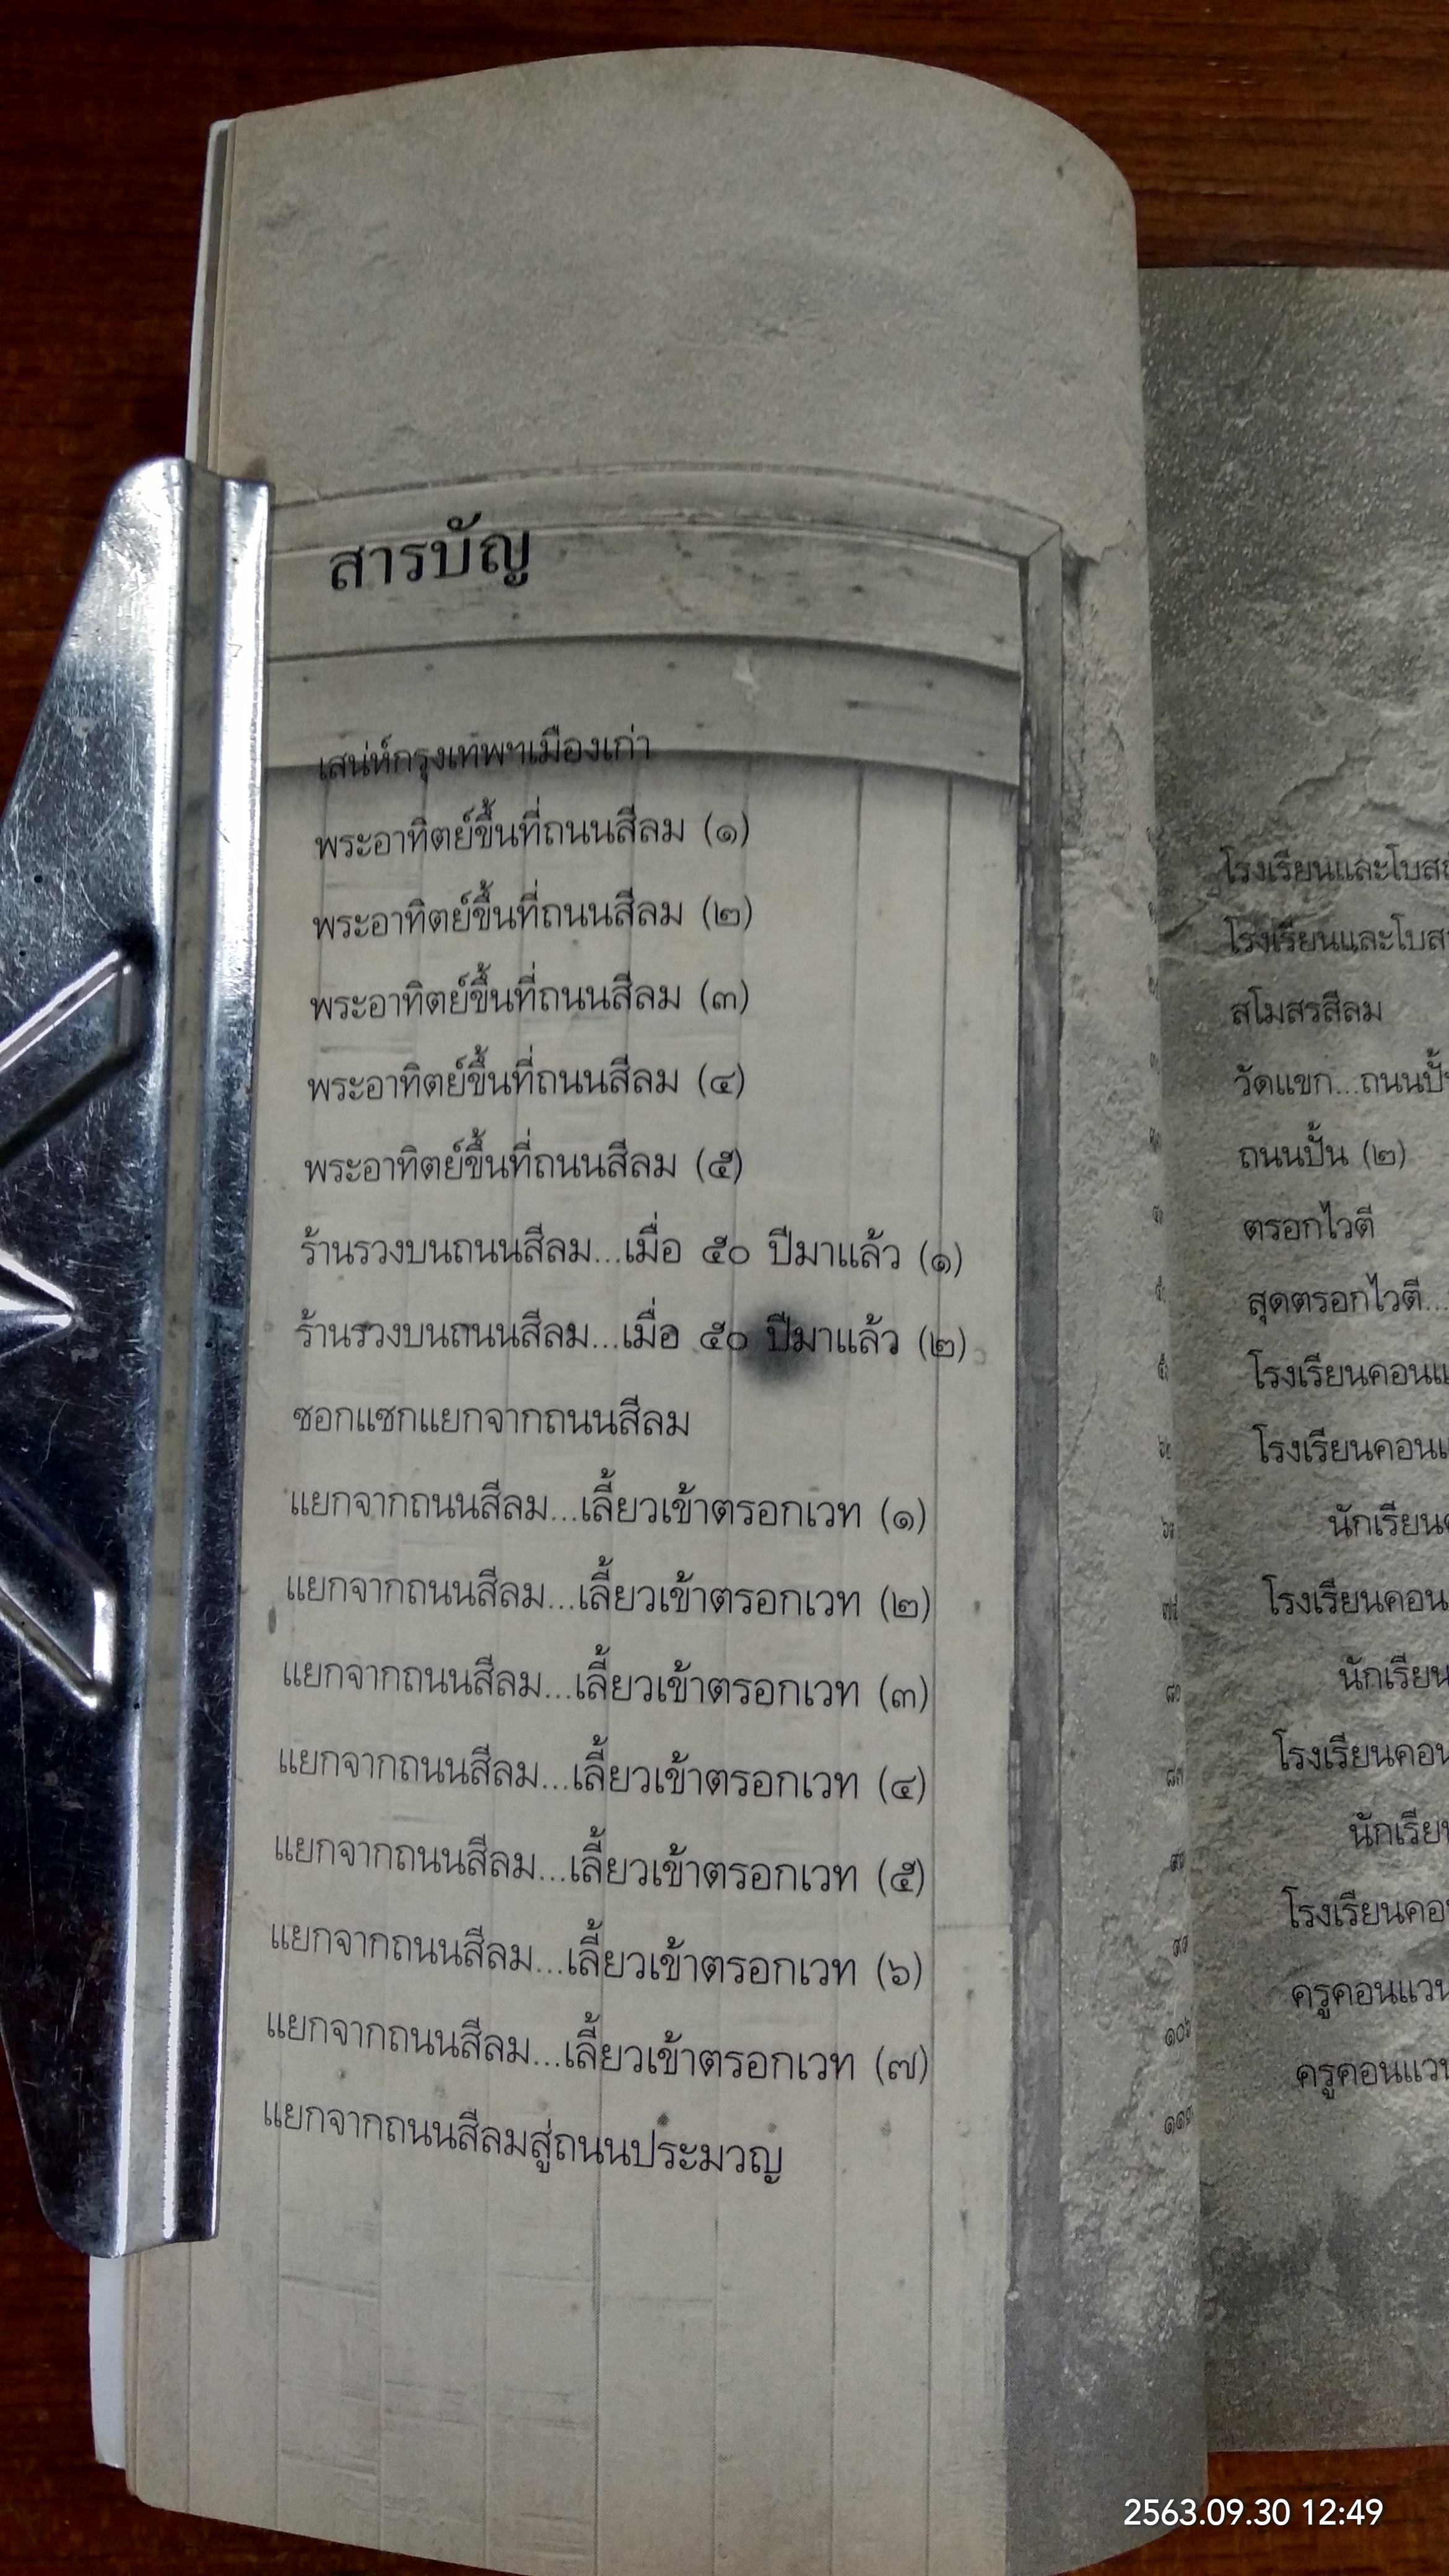 สารบัญ
เสน่ห์กรุงเทพฯเมืองเก่า
พระอาทิตย์ขึ้นที่ถนนสีลม (๑)
พระอาทิตย์ขึ้นที่ถนนสีลม (๒)
พระอาทิตย์ขึ้นที่ถนนสีลม (๓)
พระอาทิตย์ขึ้นที่ถนนสีลม (๔)
พระอาทิตย์ขึ้นที่ถนนสีลม (๕)
ร้านรวงบนถนนสีลม...เมื่อ ๕๐ ปีมาแล้ว (๑)
ร้านรวงบนถนนสีลม...เมื่อ ๕๐ ปีมาแล้ว (๒)
ซอกแซกแยกจากถนนสีลม
แยกจากถนนสีลม...เลี้ยวเข้าตรอกเวท (๑)
แยกจากถนนสีลม...เลี้ยวเข้าตรอกเวท (๒)
แยกจากถนนสีลม...เลี้ยวเข้าตรอกเวท (๓)
แยกจากถนนสีลม...เลี้ยวเข้าตรอกเวท (๔)
แยกจากถนนสีลม...เลี้ยวเข้าตรอกเวท (๕)
แยกจากถนนสีลม...เลี้ยวเข้าตรอกเวท (๖)
แยกจากถนนสีลม...เลี้ยวเข้าตรอกเวท (๗)
แยกจากถนนสีลมสู่ถนนประมวญ
โรงเรียนและโบสถ
โรงเรียนและโบส
สโมสรสีลม
วัดแขก...ถนนปั้
ถนนปั้น (๒)
ตรอกไวตี
สุดตรอกไวตี...
โรงเรียนคอนแ
โรงเรียนคอนแ
นักเรียน
โรงเรียนคอน
นักเรียน
โรงเรียนคอน
นักเรีย
โรงเรียนคอ
ครูคอนแวน
ครูคอนแว
2563.09.30 12:49